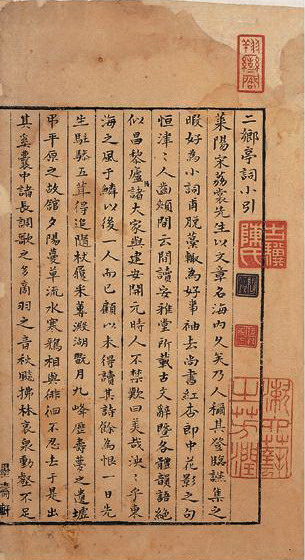 二鄉亭詞小引
萊陽宋荔裳先生以文章名海內久矣乃人稱其登臨讌集之
暇好為小詞甫脫藁輒為好事袖去尚書紅杏郎中花影之句
恒津二人齒頰間云間讀安雅堂所載古文辭暨各體韻語絕
似昌黎廬陵諸大家與建安開元時人不禁歎曰美哉泱二乎東
海之風于鱗以後一人而已顧以未得讀其詩餘為恨一日先
生駐驂五茸得追隨杖履釆蓴澱湖翫月九峰歷壽蔓之遺墟
弔平原之故館夕陽蔓草流水寒鴉相與徘徊不忍去于是出
其奚囊中諸長調歌之多商羽之音秋颷拂林哀泉動壑不足
墨齋軒